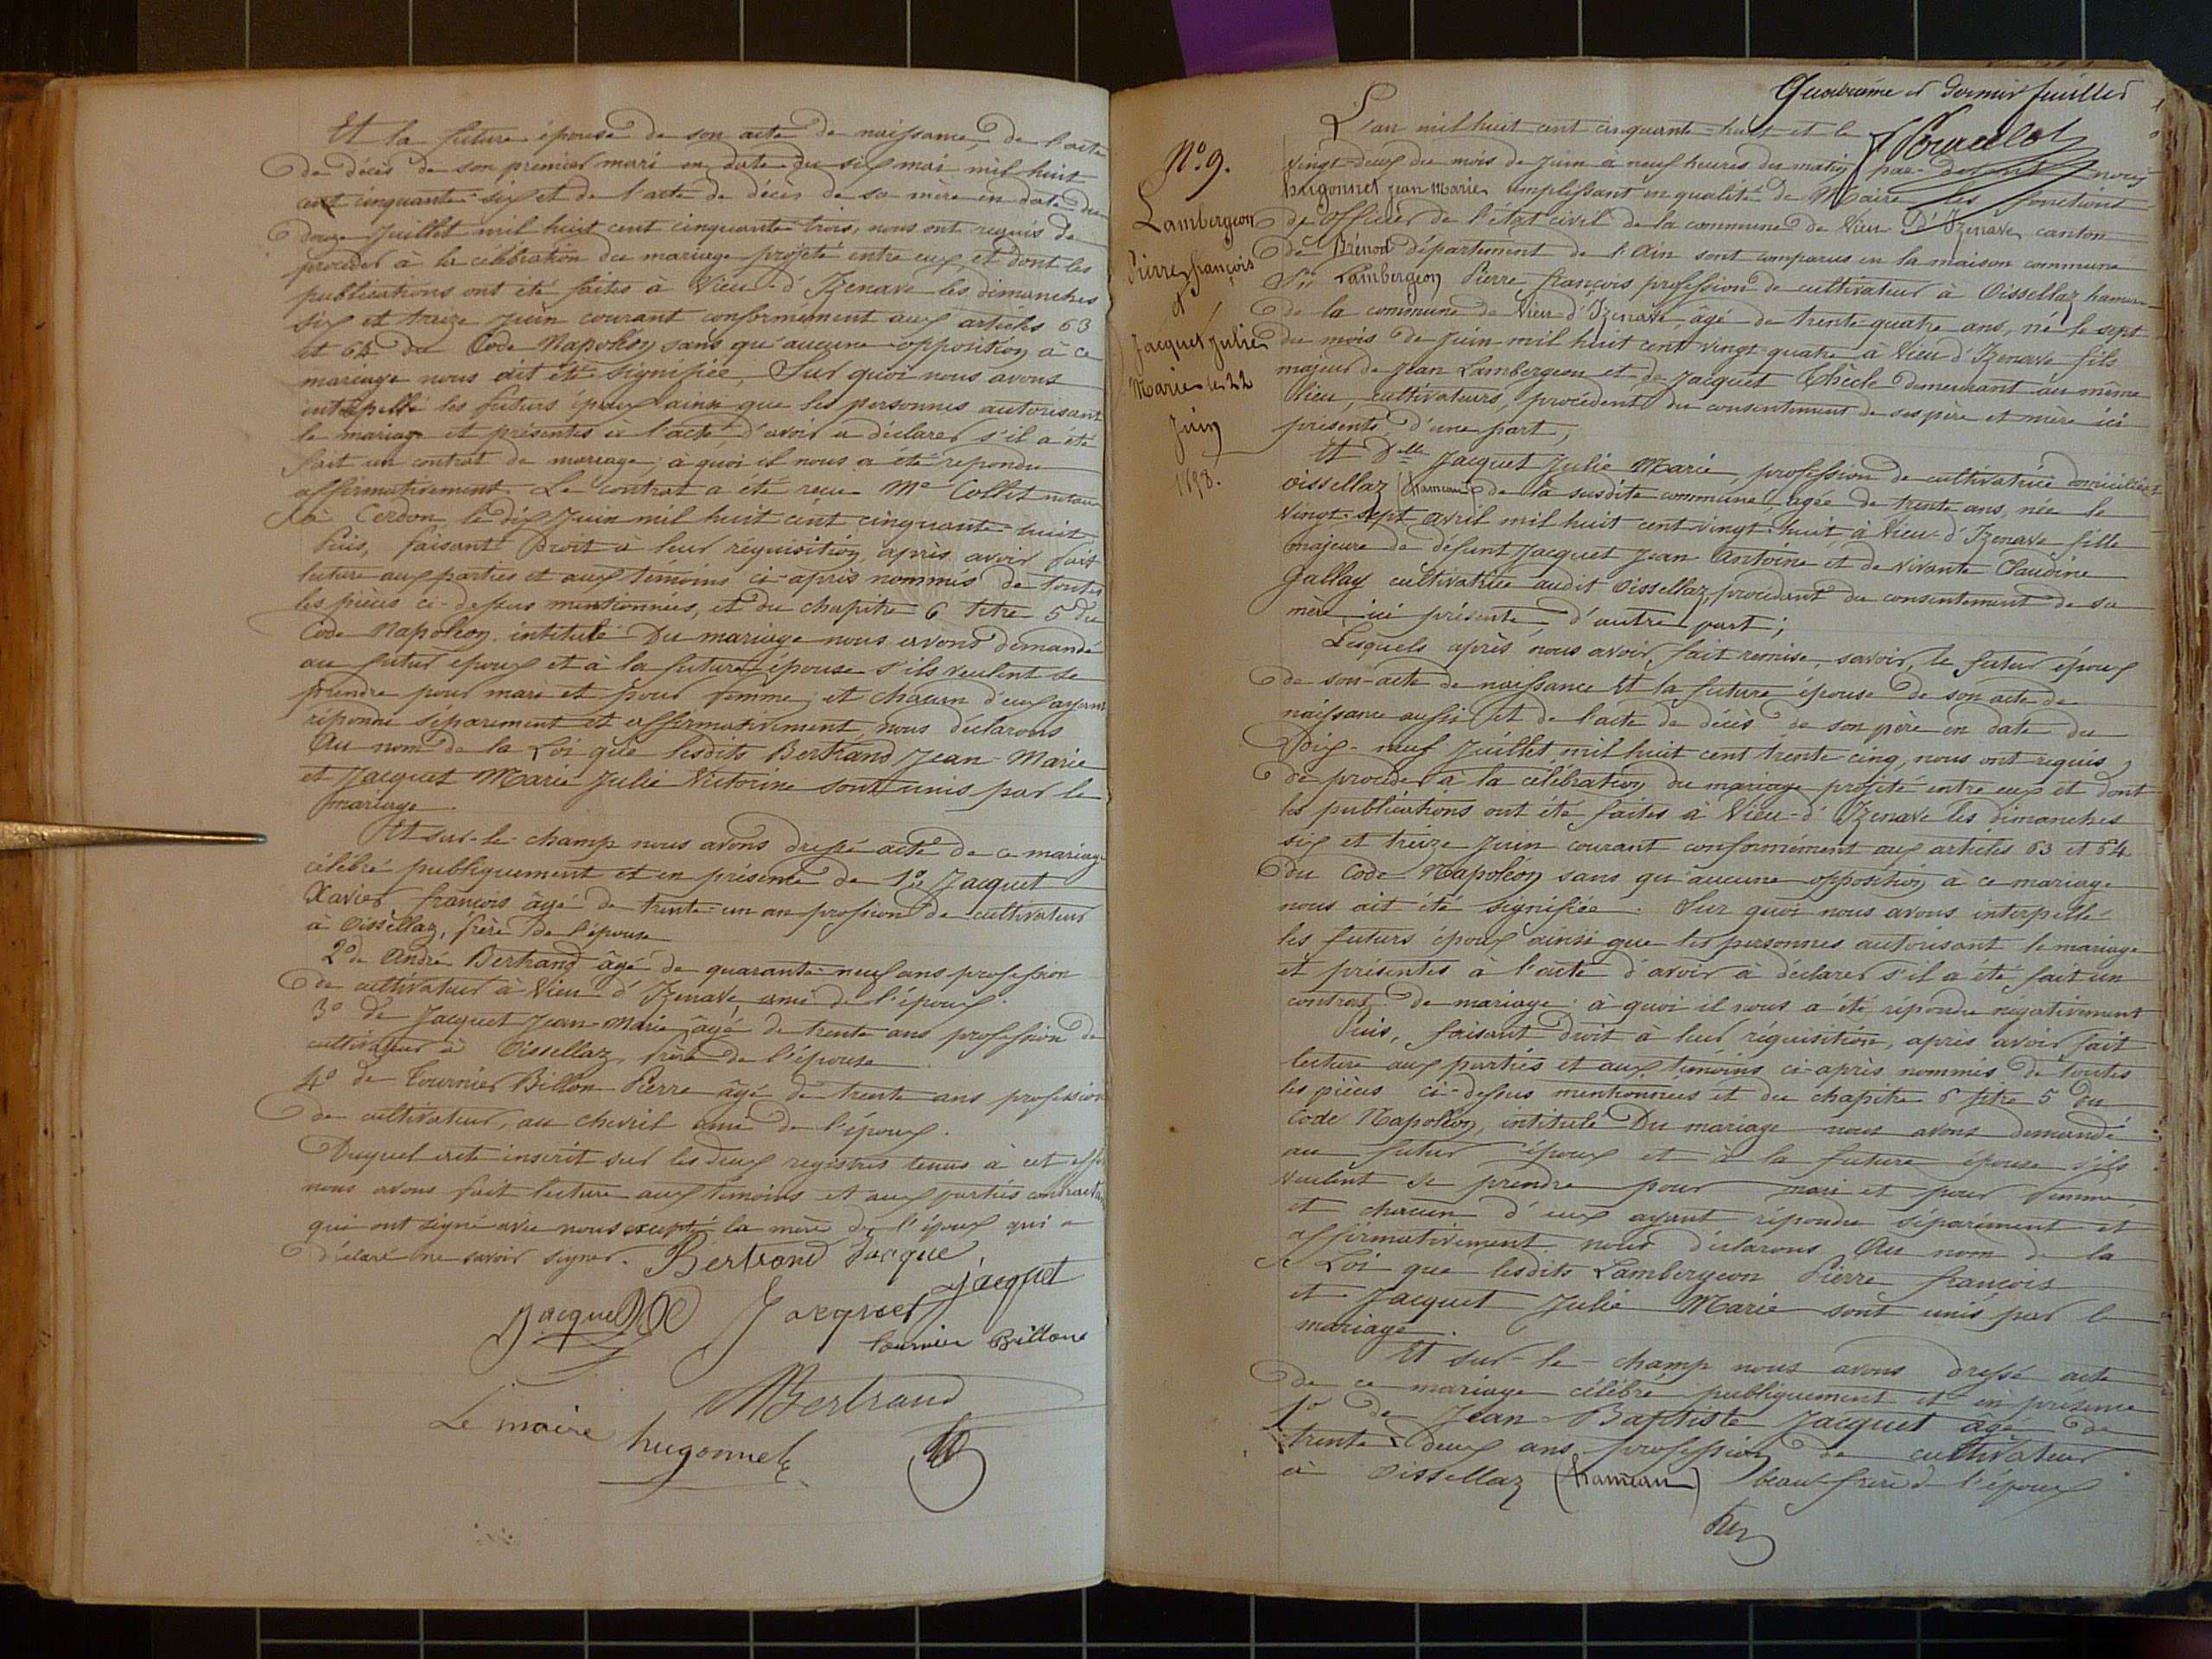 Et la future épouse de son acte de naissance, de l'acte
de décès de son premier mari en date du six mai mil huit
cent cinquante-six et de l'acte de décès de sa mère en date du
douze Juillet mil huit cent cinquante trois, nous ont requis de
procéder à la célébration du mariage projeté entre eux, et dont les
publications ont été faites à Vieu-d'Izenave les dimanches
six et treize Juin courant conformément aux articles 63
et 64 du Code Napoléon sans qu'aucune opposition à ce
mariage nous ait été signifiée, Sur quoi nous avons
interpellé les futurs époux ainsi que les personnes autorisant
le mariage et présentes à l'acte d'avoir a déclarer s'il a été
fait un contrat de mariage; à quoi il nous a été répondu
affirmativement. Le contrat a été reçu Me Collet notaire
à Cerdon le dix Juin mil huit cent cinquante-huit.
Puis, faisant droit à leur réquisition, après avoir fait
lecture aux parties et aux témoins ci-après nommés de toutes
les pièces ci-dessus mentionnées, et du chapitre 6 titre 5 du
Code Napoléon intitulé Du mariage nous avons demandé
au futur époux et à la future épouse s'ils veulent se
prendre pour mari et pour femme; et chacun d'eux ayant
répondu séparement et affirmativement, nous déclarons
Au nom de la Loi que lesdits Bertrand Jean-Marie
et Jacquet Marie Julie Victorine sont unis par le
mariage.
Et sur-le-champ nous avons dressé acte de ce mariage
célébré publiquement et en présence de 1° Jacquet
Xavier françois âgé de trente-un an profession de cultivateur
à Oissellaz, frère de l'épouse
2° de André Bertrand âgé de quarante-neuf ans profession
de cultivateur à Vieu d'Izenave, ami de l'époux.
3° de Jacquet Jean-Marie, âgé de trente ans profession de
cultivateur à Oissellaz, frère de l'épouse.
4° de Tournier Billon Pierre âgé de trente ans profession
de cultivateur, au chevril ami de l'époux.
Duquel acte inscrit sur les deux registres tenus à cet effet
nous avons fait lecture aux témoins et aux parties contractantes
qui ont signé avec nous excepté la mère de l'époux qui a
déclaré ne savoir signer. Bertrand Jacque
Jacquet
Jacquet Jacquet
tournier Billone
Bertrand
Le maire hugonnet
Quatrième et dernier feuillet
N° 9.
Lambergeon
Pierre françois
et
Jacquet Julie
Marie le 22
Juin
1858.
L'an mil huit cent cinquante-huit et le
vingt-deux du mois de Juin à neuf heures du matin par-devant nous
hugonnet Jean Marie remplissant en qualité de Maire les fonctions
de Officier de l'état civil de la commune de Vieu-D'Izenave, canton
de Brénod département de l'Ain sont comparus en la maison commune
Sr Lambergeon Pierre françois profession de cultivateur à Oissellaz hameau
de la commune de Vieu d'Izenave, âgé de trente-quatre ans, né le sept
du mois de Juin mil huit cent vingt-quatre à Vieu d'Izenave fils
majeur de Jean Lambergeon et de Jacquet Thècle demeurant au même
lieu, cultivateurs, procédent du consentement de ses père et mère ici
présents d'une part,
Et Delle Jacquet Julie Marie, profession de cultivatrice domiciliée
oissellaz (hameau) de la susdite commune, agée de trente ans, née le
vingt-sept avril mil huit cent vingt-huit, à Vieu-d'Izenave fille
majeure de défunt Jacquet Jean Antoine et de vivante Claudine
Gallay cultivatrice audit Oissellaz, procédant du consentement de sa
mère ici présente, d'autre part;
Lesquels après nous avoir fait remise, savoir, le futur époux
de son acte de naissance Et la future épouse de son acte de
naissance aussi et de l'acte de décès de son père en date du
dix-neuf Juillet mil huit cent trente cinq, nous ont requis
de procéder à la célébration du mariage projeté entre eux et dont
les publications ont été faites à Vieu-d'Izenave les dimanches
six et treize Juin courant conformément aux articles 63 et 64
du Code Napoléon sans qu'aucune opposition à ce mariage
nous ait été signifiée. Sur quoi nous avons interpellé
les futurs époux ainsi que les personnes autorisant le mariage
et présentes à l'acte d'avoir à déclarer s'il a été fait un
contrat de mariage: à quoi il nous a été répondu négativement
Puis, faisant droit à leur réquisition, après avoir fait
lecture aux parties et aux témoins ci-après nommés de toutes
les pièces ci-dessus mentionnées et du chapitre 6 titre 5 du
Code Napoléon, intitulé Du mariage nous avons demandé
au futur époux et à la future épouse s'ils
veulent se prendre pour mari et pour femme
et chacun d'eux ayant répondu séparément et
affirmativement nous déclarons Au nom de la
Loi que lesdits Lambergeon Pierre françois
et Jacquet Julie Marie sont unis par le
mariage.
Et sur-le-champ nous avons dressé acte
de ce mariage célébré publiquement et en présence
1° de Jean-Baptiste Jacquet âgé de
trente-deux ans profession de cultivateur
à Oissellaz (hameau) beau-frère de l'époux